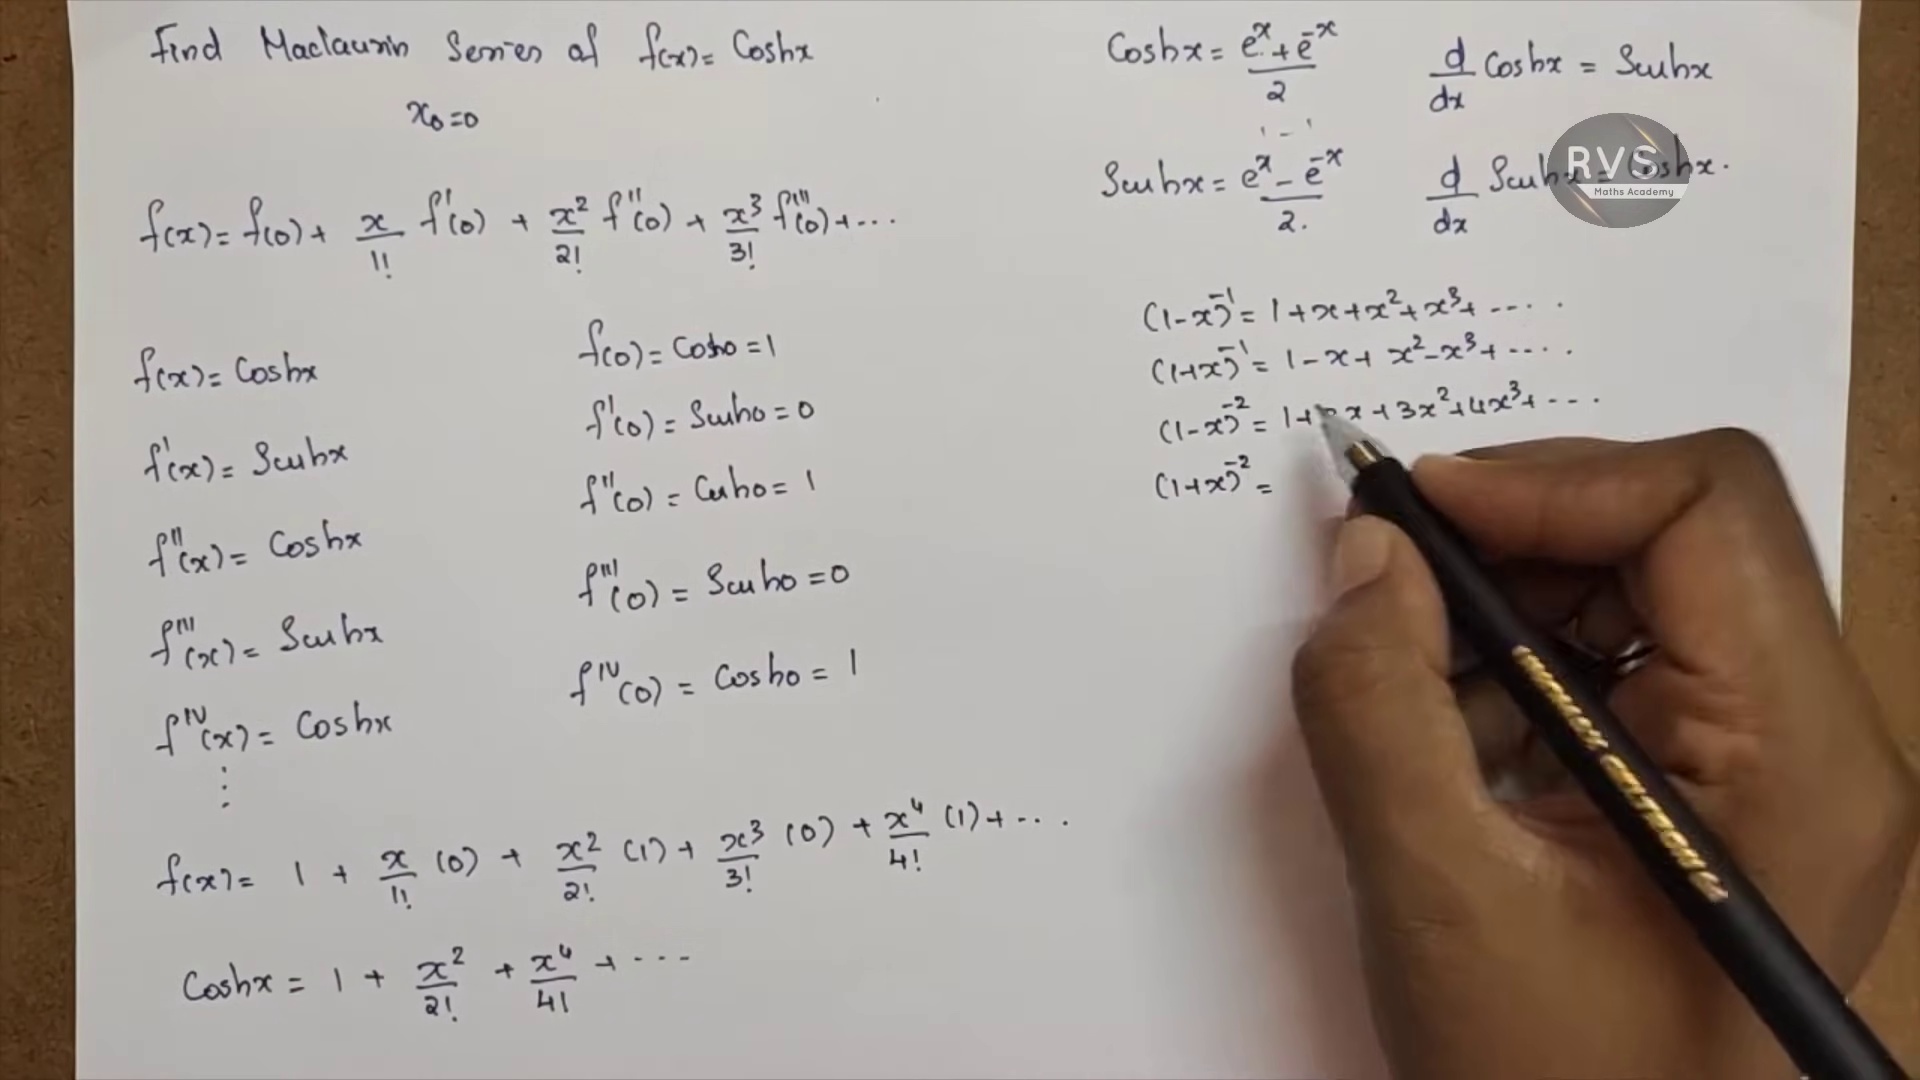 Find Maclaurin Series of f(x) = Coshx
x₀=0
f(x) = f(0) + x/1! f'(0) + x²/2! f''(0) + x³/3! f'''(0) + ...
f(x) = Coshx
f'(x) = Sinhx
f''(x) = Coshx
f'''(x) = Sinhx
fᴵⱽ(x) = Coshx
⋮
f(0) = Cosh0 = 1
f'(0) = Sinh0 = 0
f''(0) = Cosh0 = 1
f'''(0) = Sinh0 = 0
fᴵⱽ(0) = Cosh0 = 1
f(x) = 1 + x/1! (0) + x²/2! (1) + x³/3! (0) + x⁴/4! (1) + ...
Coshx = 1 + x²/2! + x⁴/4! + ...
Coshx = (eˣ + e⁻ˣ)/2
d/dx Coshx = Sinhx
Sinhx = (eˣ - e⁻ˣ)/2.
d/dx Sinhx = Coshx.
RVS
Maths Academy
(1-x)⁻¹ = 1+x+x²+x³+ .....
(1+x)⁻¹ = 1-x+x²-x³+ .....
(1-x)⁻² = 1+2x+3x²+4x³+ ....
(1+x)⁻² =